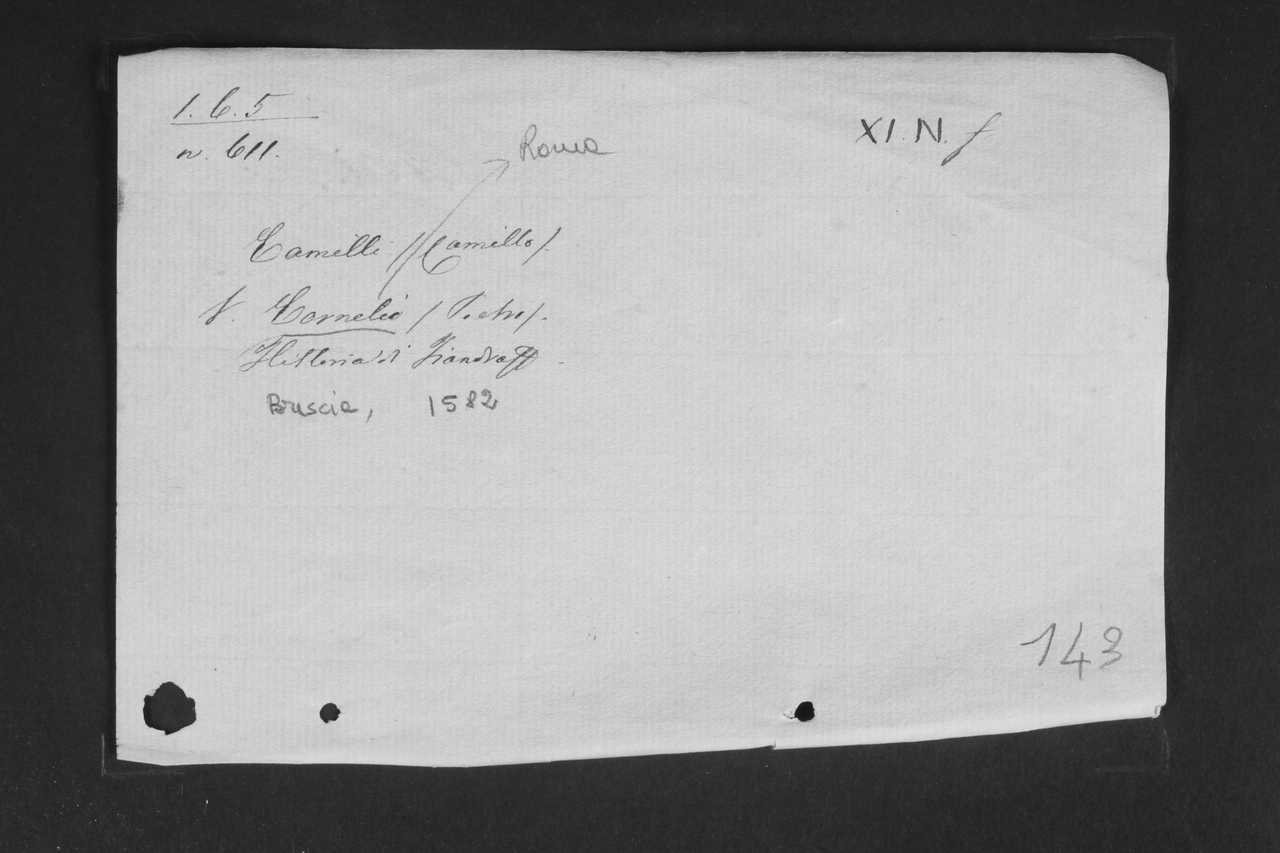 1.6.5
n. 611.
Roma
XI. N. f
Camilli (Camillo).
V. Cornelio (Pietro).
Historia di Fiandra
Brescia, 1582
143